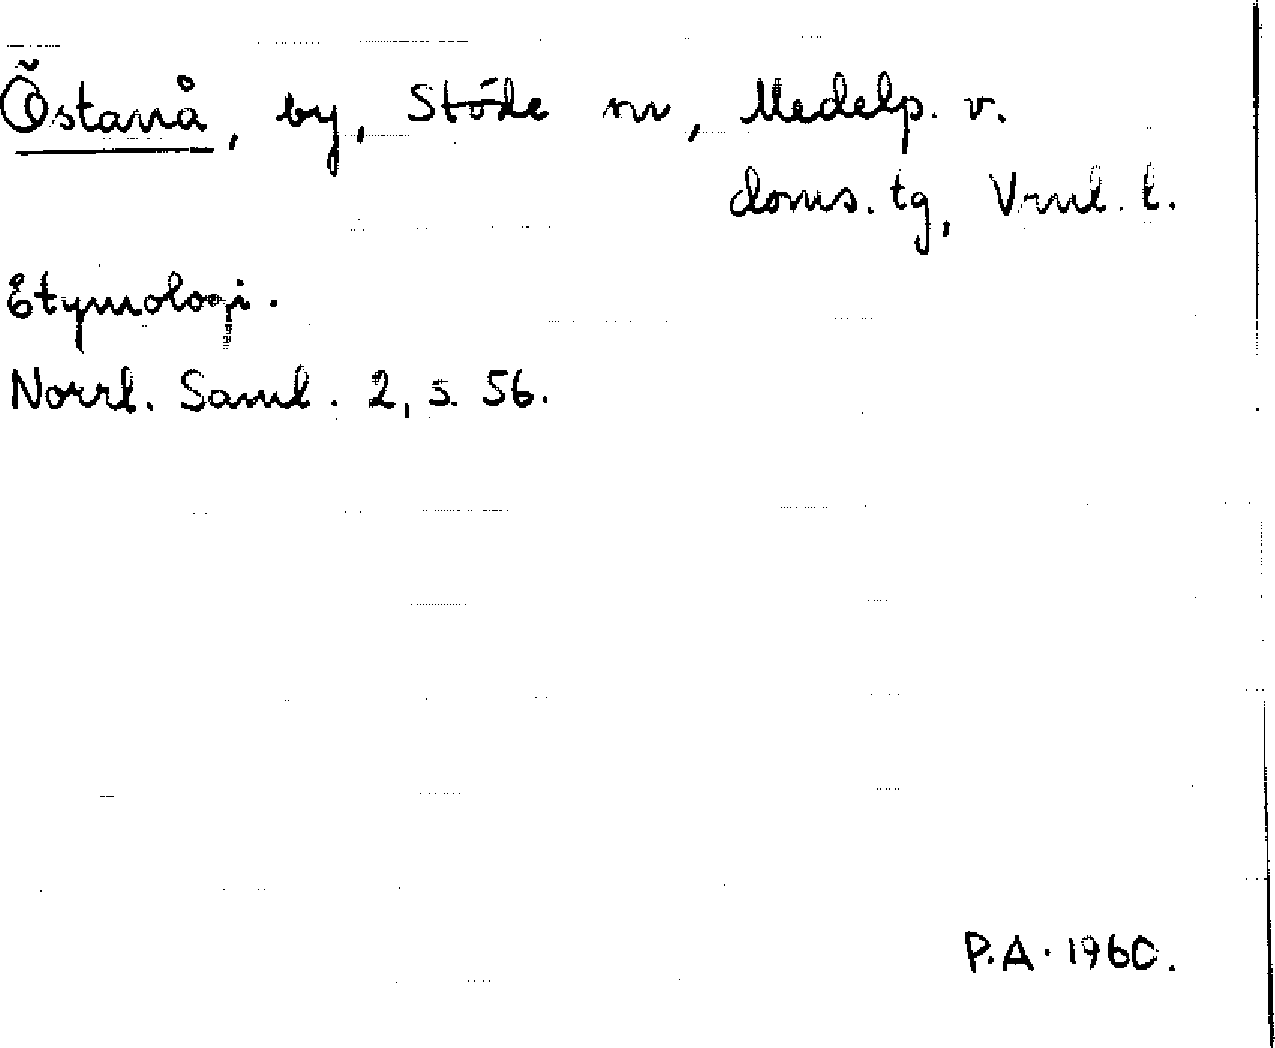 Östanå, by, Stöde sn, Medelp. v.
doms. tg, Vrnl. l.
Etymologi.
Norrl. Saml. 2, s. 56.
P.A. 1960.